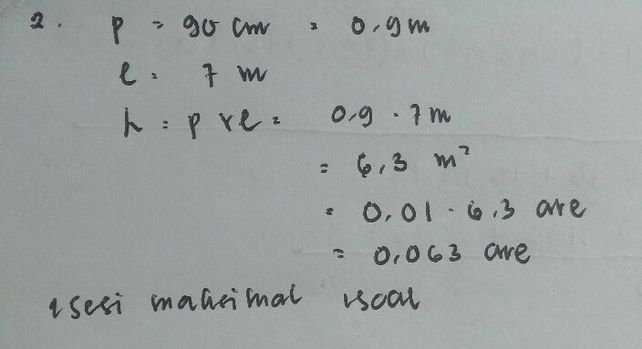 2. p = 90 cm = 0,9 m
l = 7 m
L = p x l = 0,9 . 7 m
= 6,3 m²
= 0,01 . 6,3 are
= 0,063 are
1 sesi maksimal 1 soal